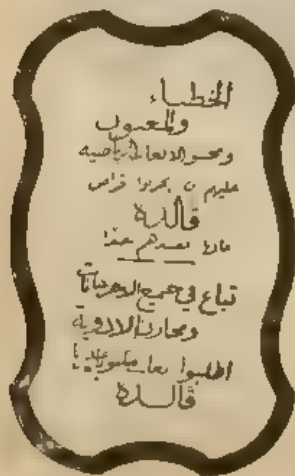 الخطباء
والمغنون
ومحبو الالعاب الرياضيه
عليهم ان يجربوا قراص
ڤالده
فانها تفيدهم جدا
تباع في جميع الاجزاخانات
ومخازن الادوية
اطلبوا
ڤالده